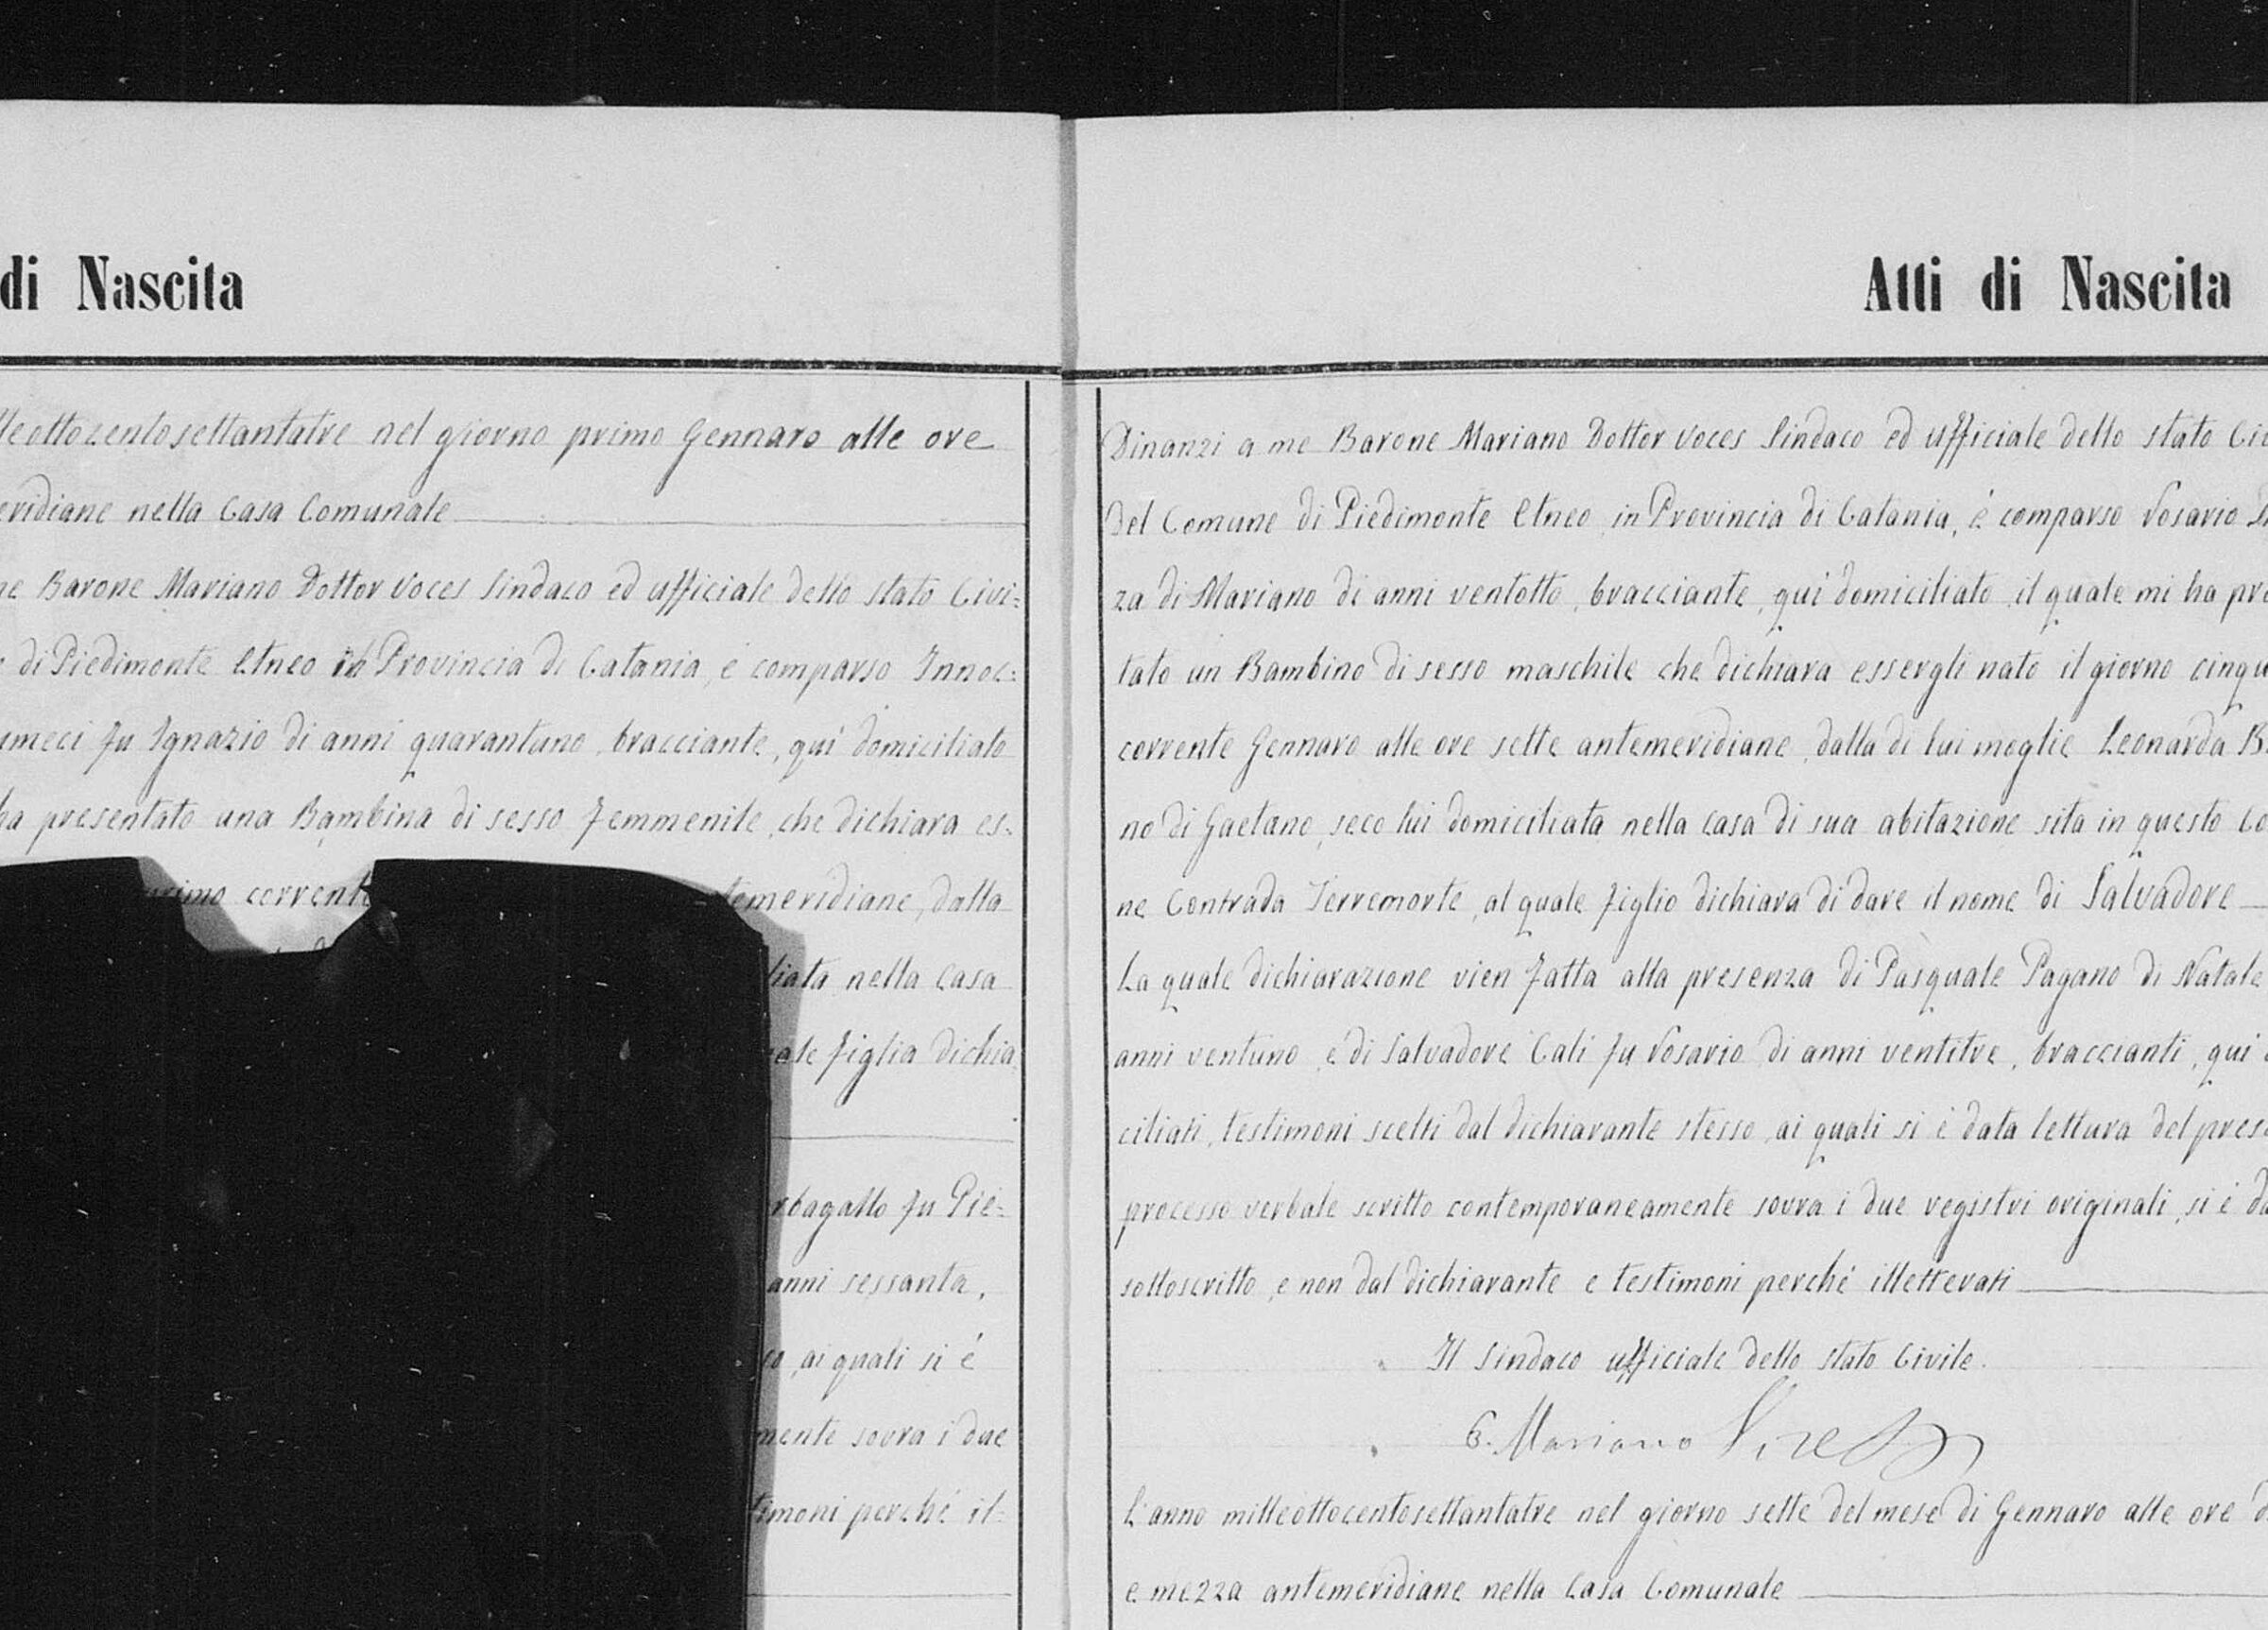 di Nascita
lleottocentosettantatre nel giorno primo Gennaro alle ore
eridiane nella Casa Comunale
ne Barone Mariano Dottor Voces Sindaco ed ufficiale dello stato Civi=
di Piedimonte Etneo in Provincia di Catania, è comparso Innoc=
umeci fu Ignazio di anni quarantuno, bracciante, qui domiciliato
ha presentato una Bambina di sesso femmenile, che dichiara es=
primo corrente temeridiane, dalla
liata nella casa
ale figlia dichia
rbagallo fu Pie=
anni sessanta,
co, ai quali si è
mente sovra i due
timoni perché il=
Atti di Nascita
Dinanzi a me Barone Mariano Dottor Voces Sindaco ed ufficiale dello stato Civ
del Comune di Piedimonte Etneo, in Provincia di Catania, è comparso Rosario
za di Mariano di anni ventotto, bracciante, qui domiciliato, il quale mi ha pre
tato un Bambino di sesso maschile che dichiara essergli nato il giorno cinqu
corrente Gennaro alle ore sette antemeridiane, dalla di lui moglie Leonarda B
no di Gaetano, seco lui domiciliata, nella casa di sua abitazione sita in questo Co
ne Contrada Terremorte, al quale figlio dichiara di dare il nome di Salvadore
La quale dichiarazione vien fatta alla presenza di Pasquale Pagano di Natale
anni ventuno, e di Salvadore Calì fu Rosario di anni ventitre, braccianti, qui
ciliati, testimoni scelti dal dichiarante stesso, ai quali si è data lettura del prese
processo verbale scritto contemporaneamente sovra i due registri originali, si è da
sottoscritto, e non dal dichiarante e testimoni perché illetterati
Il Sindaco ufficiale dello stato Civile.
B. Mariano Voces
L'anno milleottocentosettantatre nel giorno sette del mese di Gennaro alle ore d
e mezza antemeridiane nella Casa Comunale